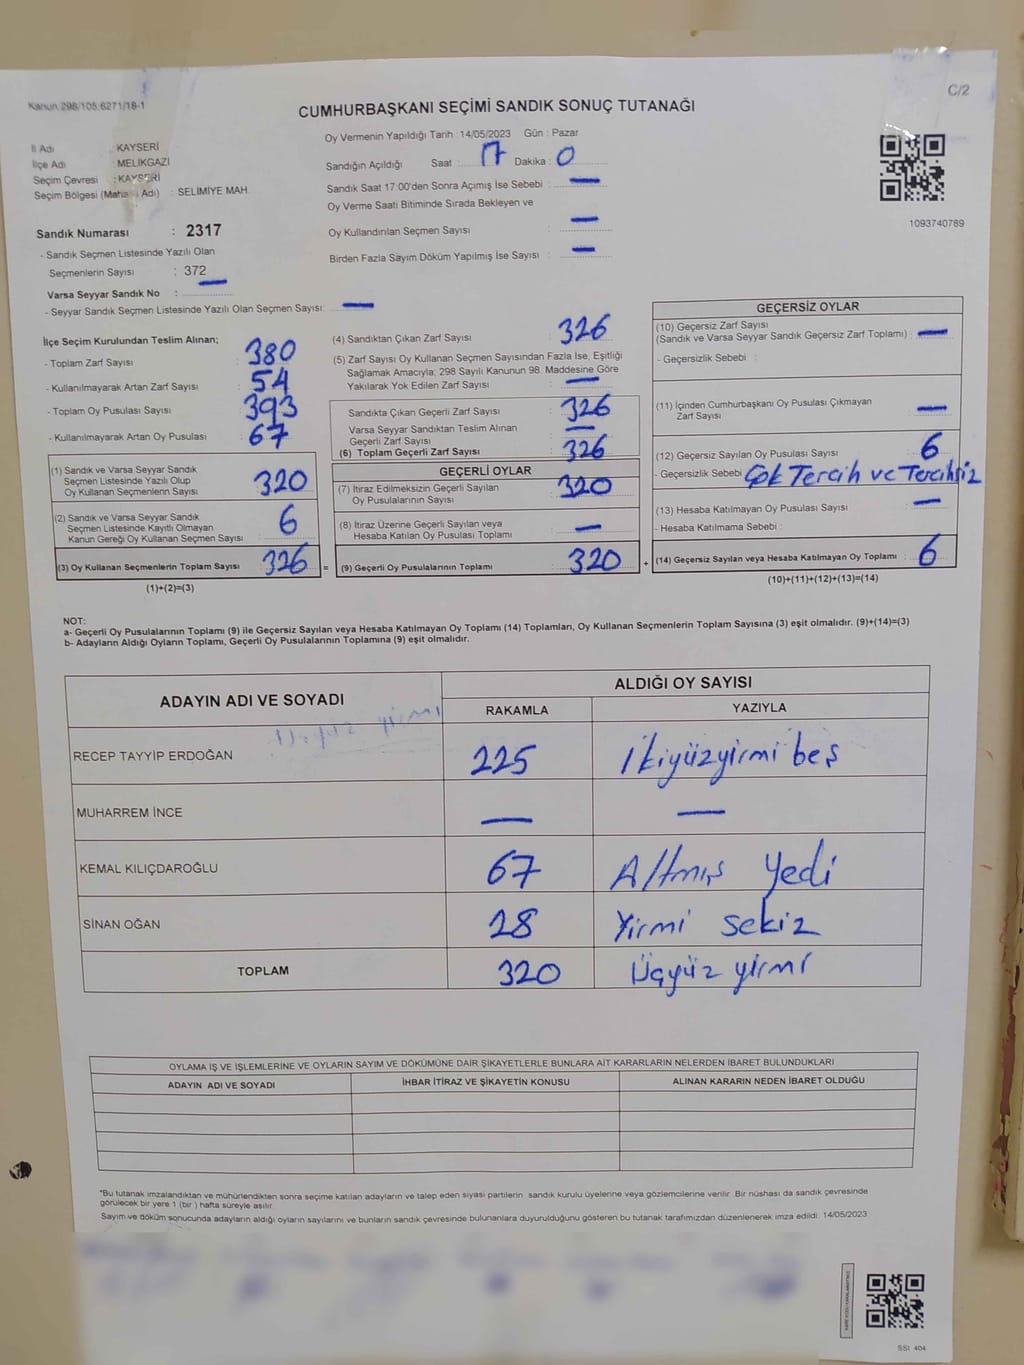 Kanun 298/105,6271/18-1
C/2
CUMHURBAŞKANI SEÇİMİ SANDIK SONUÇ TUTANAĞI
İl Adı : KAYSERİ
İlçe Adı : MELİKGAZİ
Seçim Çevresi : KAYSERİ
Seçim Bölgesi (Maha Adı) : SELIMIYE MAH.
Oy Vermenin Yapıldığı Tarih : 14/05/2023 Gün : Pazar
Sandığın Açıldığı Saat : 17 Dakika : 0
Sandık Saat 17:00'den Sonra Açımış İse Sebebi : —
Oy Verme Saati Bitiminde Sırada Bekleyen ve
Oy Kullandırılan Seçmen Sayısı : —
Birden Fazla Sayım Döküm Yapılmış İse Sayısı : —
1093740789
Sandık Numarası : 2317
- Sandık Seçmen Listesinde Yazılı Olan
Seçmenlerin Sayısı : 372
Varsa Seyyar Sandık No : —
- Seyyar Sandık Seçmen Listesinde Yazılı Olan Seçmen Sayısı: —
İlçe Seçim Kurulundan Teslim Alınan;
- Toplam Zarf Sayısı : 380
- Kullanılmayarak Artan Zarf Sayısı : 54
- Toplam Oy Pusulası Sayısı : 393
- Kullanılmayarak Artan Oy Pusulası : 67
(1) Sandık ve Varsa Seyyar Sandık
Seçmen Listesinde Yazılı Olup
Oy Kullanan Seçmenlerin Sayısı : 320
(2) Sandık ve Varsa Seyyar Sandık
Seçmen Listesinde Kayıtlı Olmayan
Kanun Gereği Oy Kullanan Seçmen Sayısı : 6
(3) Oy Kullanan Seçmenlerin Toplam Sayısı : 326
(1)+(2)=(3)
(4) Sandıktan Çıkan Zarf Sayısı : 326
(5) Zarf Sayısı Oy Kullanan Seçmen Sayısından Fazla İse, Eşitliği
Sağlamak Amacıyla; 298 Sayılı Kanunun 98. Maddesine Göre
Yakılarak Yok Edilen Zarf Sayısı : —
Sandıkta Çıkan Geçerli Zarf Sayısı : 326
Varsa Seyyar Sandıktan Teslim Alınan
Geçerli Zarf Sayısı : —
(6) Toplam Geçerli Zarf Sayısı : 326
GEÇERLİ OYLAR
(7) İtiraz Edilmeksizin Geçerli Sayılan
Oy Pusulalarının Sayısı : 320
(8) İtiraz Üzerine Geçerli Sayılan veya
Hesaba Katılan Oy Pusulası Toplamı : —
= (9) Geçerli Oy Pusulalarının Toplamı : 320 +
GEÇERSİZ OYLAR
(10) Geçersiz Zarf Sayısı
(Sandık ve Varsa Seyyar Sandık Geçersiz Zarf Toplamı) : —
- Geçersizlik Sebebi :
(11) İçinden Cumhurbaşkanı Oy Pusulası Çıkmayan
Zarf Sayısı : —
(12) Geçersiz Sayılan Oy Pusulası Sayısı : 6
- Geçersizlik Sebebi : Çok Tercih ve Tercihsiz
(13) Hesaba Katılmayan Oy Pusulası Sayısı : —
- Hesaba Katılmama Sebebi :
(14) Geçersiz Sayılan veya Hesaba Katılmayan Oy Toplamı : 6
(10)+(11)+(12)+(13)=(14)
NOT:
a- Geçerli Oy Pusulalarının Toplamı (9) ile Geçersiz Sayılan veya Hesaba Katılmayan Oy Toplamı (14) Toplamları, Oy Kullanan Seçmenlerin Toplam Sayısına (3) eşit olmalıdır. (9)+(14)=(3)
b- Adayların Aldığı Oyların Toplamı, Geçerli Oy Pusulalarının Toplamına (9) eşit olmalıdır.
ADAYIN ADI VE SOYADI ALDIĞI OY SAYISI
RAKAMLA YAZIYLA
RECEP TAYYİP ERDOĞAN 225 İkiyüzyirmi beş
MUHARREM İNCE — —
KEMAL KILIÇDAROĞLU 67 Altmış Yedi
SİNAN OĞAN 28 Yirmi Sekiz
TOPLAM 320 Üçyüz yirmi
OYLAMA İŞ VE İŞLEMLERİNE VE OYLARIN SAYIM VE DÖKÜMÜNE DAİR ŞİKAYETLERLE BUNLARA AİT KARARLARIN NELERDEN İBARET BULUNDUKLARI
ADAYIN ADI VE SOYADI İHBAR İTİRAZ VE ŞİKAYETİN KONUSU ALINAN KARARIN NEDEN İBARET OLDUĞU
*Bu tutanak imzalandıktan ve mühürlendikten sonra seçime katılan adayların ve talep eden siyasi partilerin sandık kurulu üyelerine veya gözlemcilerine verilir. Bir nüshası da sandık çevresinde
görülecek bir yere 1 (bir ) hafta süreyle asılır.
Sayım ve döküm sonucunda adayların aldığı oyların sayılarını ve bunların sandık çevresinde bulunanlara duyurulduğunu gösteren bu tutanak tarafımızdan düzenlenerek imza edildi. 14/05/2023
SSt 404